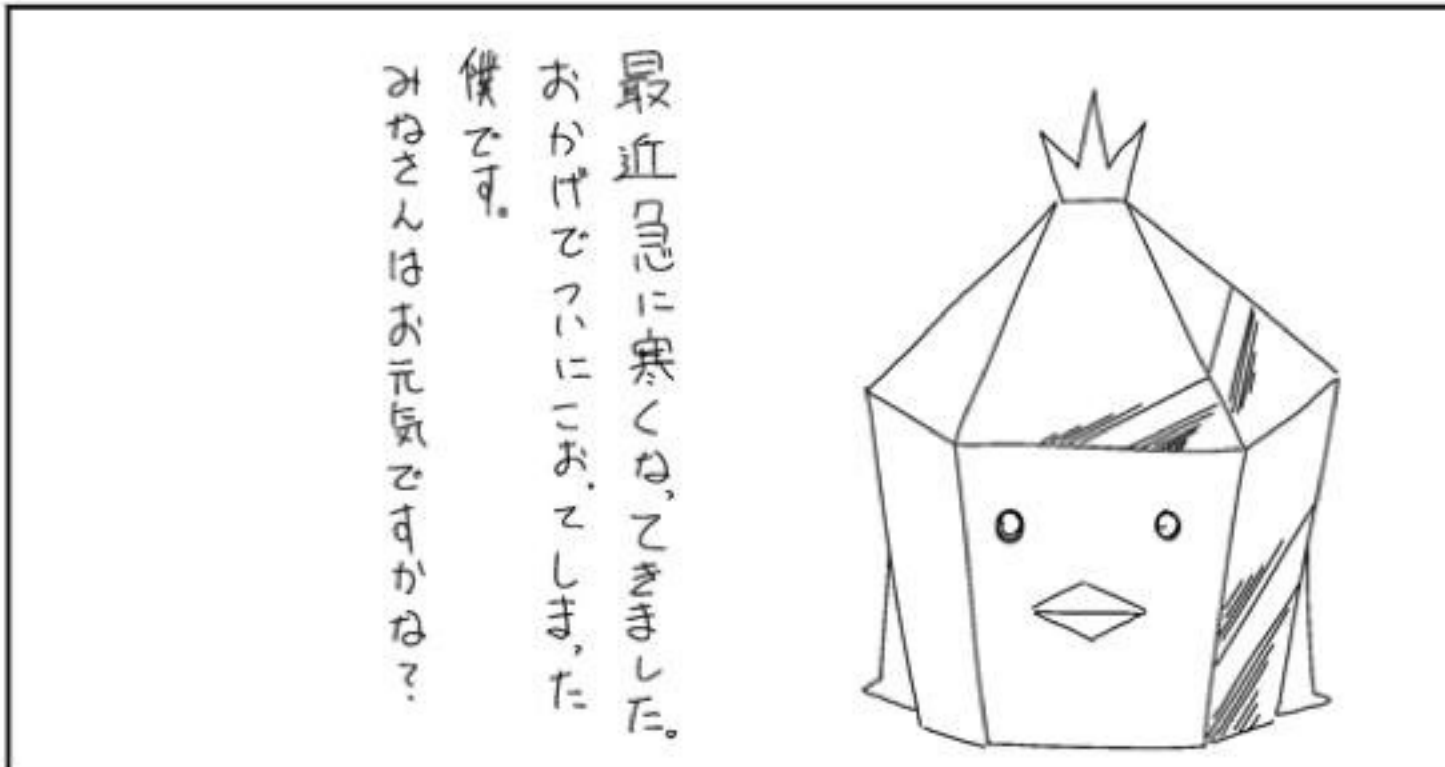 最近急に寒くなってきました。
おかげでついにこおってしまった
僕です。
みなさんはお元気ですかな?